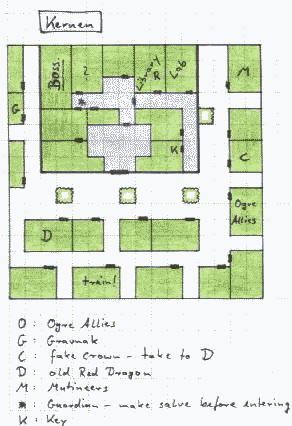 Kernen
Boss
?
Library
R
Lab
M
G
K
C
Ogre
Allies
D
train!
O : Ogre Allies
G : Gravnak
C : fake Crown - take to D
D : old Red Dragon
M : Mutineers
* : Guardian - make salve before entering
K : Key